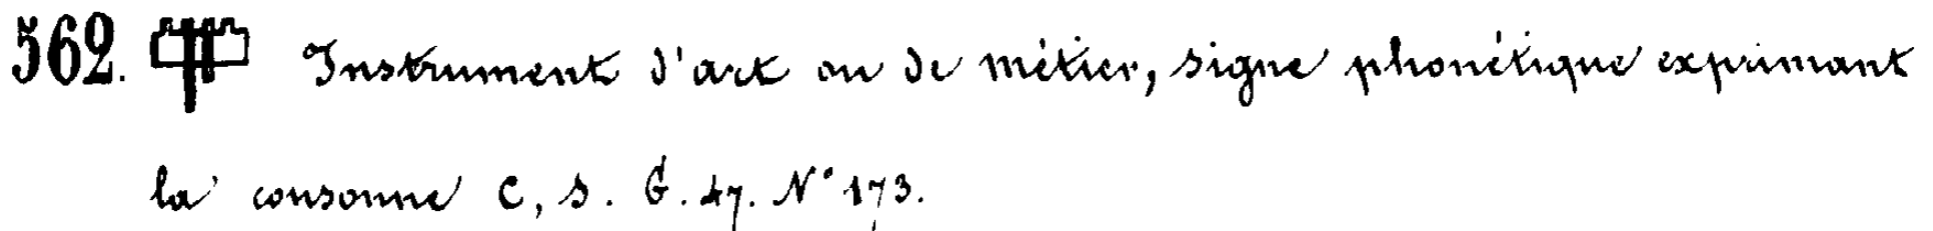 562. Instrument d'art ou de métier, signe phonétique exprimant
la consonne C, S. G. 47. N° 173.